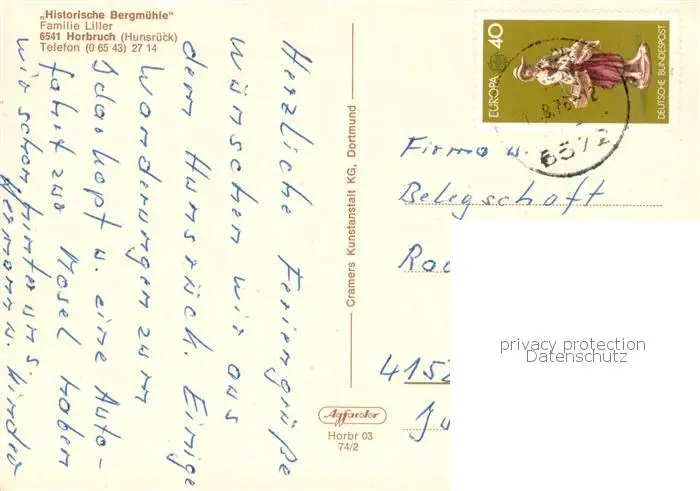 „Historische Bergmühle“
Familie Liller
6541 Horbruch (Hunsrück)
Telefon (0 65 43) 27 14
Herzliche Feriengrüße
wünschen wir aus
dem Hunsrück. Einige
Wanderungen zum
Idarkopf u. eine Auto-
fahrt zur Mosel haben
wir schon hinter uns
Hermann u. Kinder
Cramers Kunstanstalt KG, Dortmund
Agfacolor
Horbr 03
74/2
EUROPA 40
DEUTSCHE BUNDESPOST
.8.76-12
6572
Firma u.
Belegschaft
415
privacy protection
Datenschutz